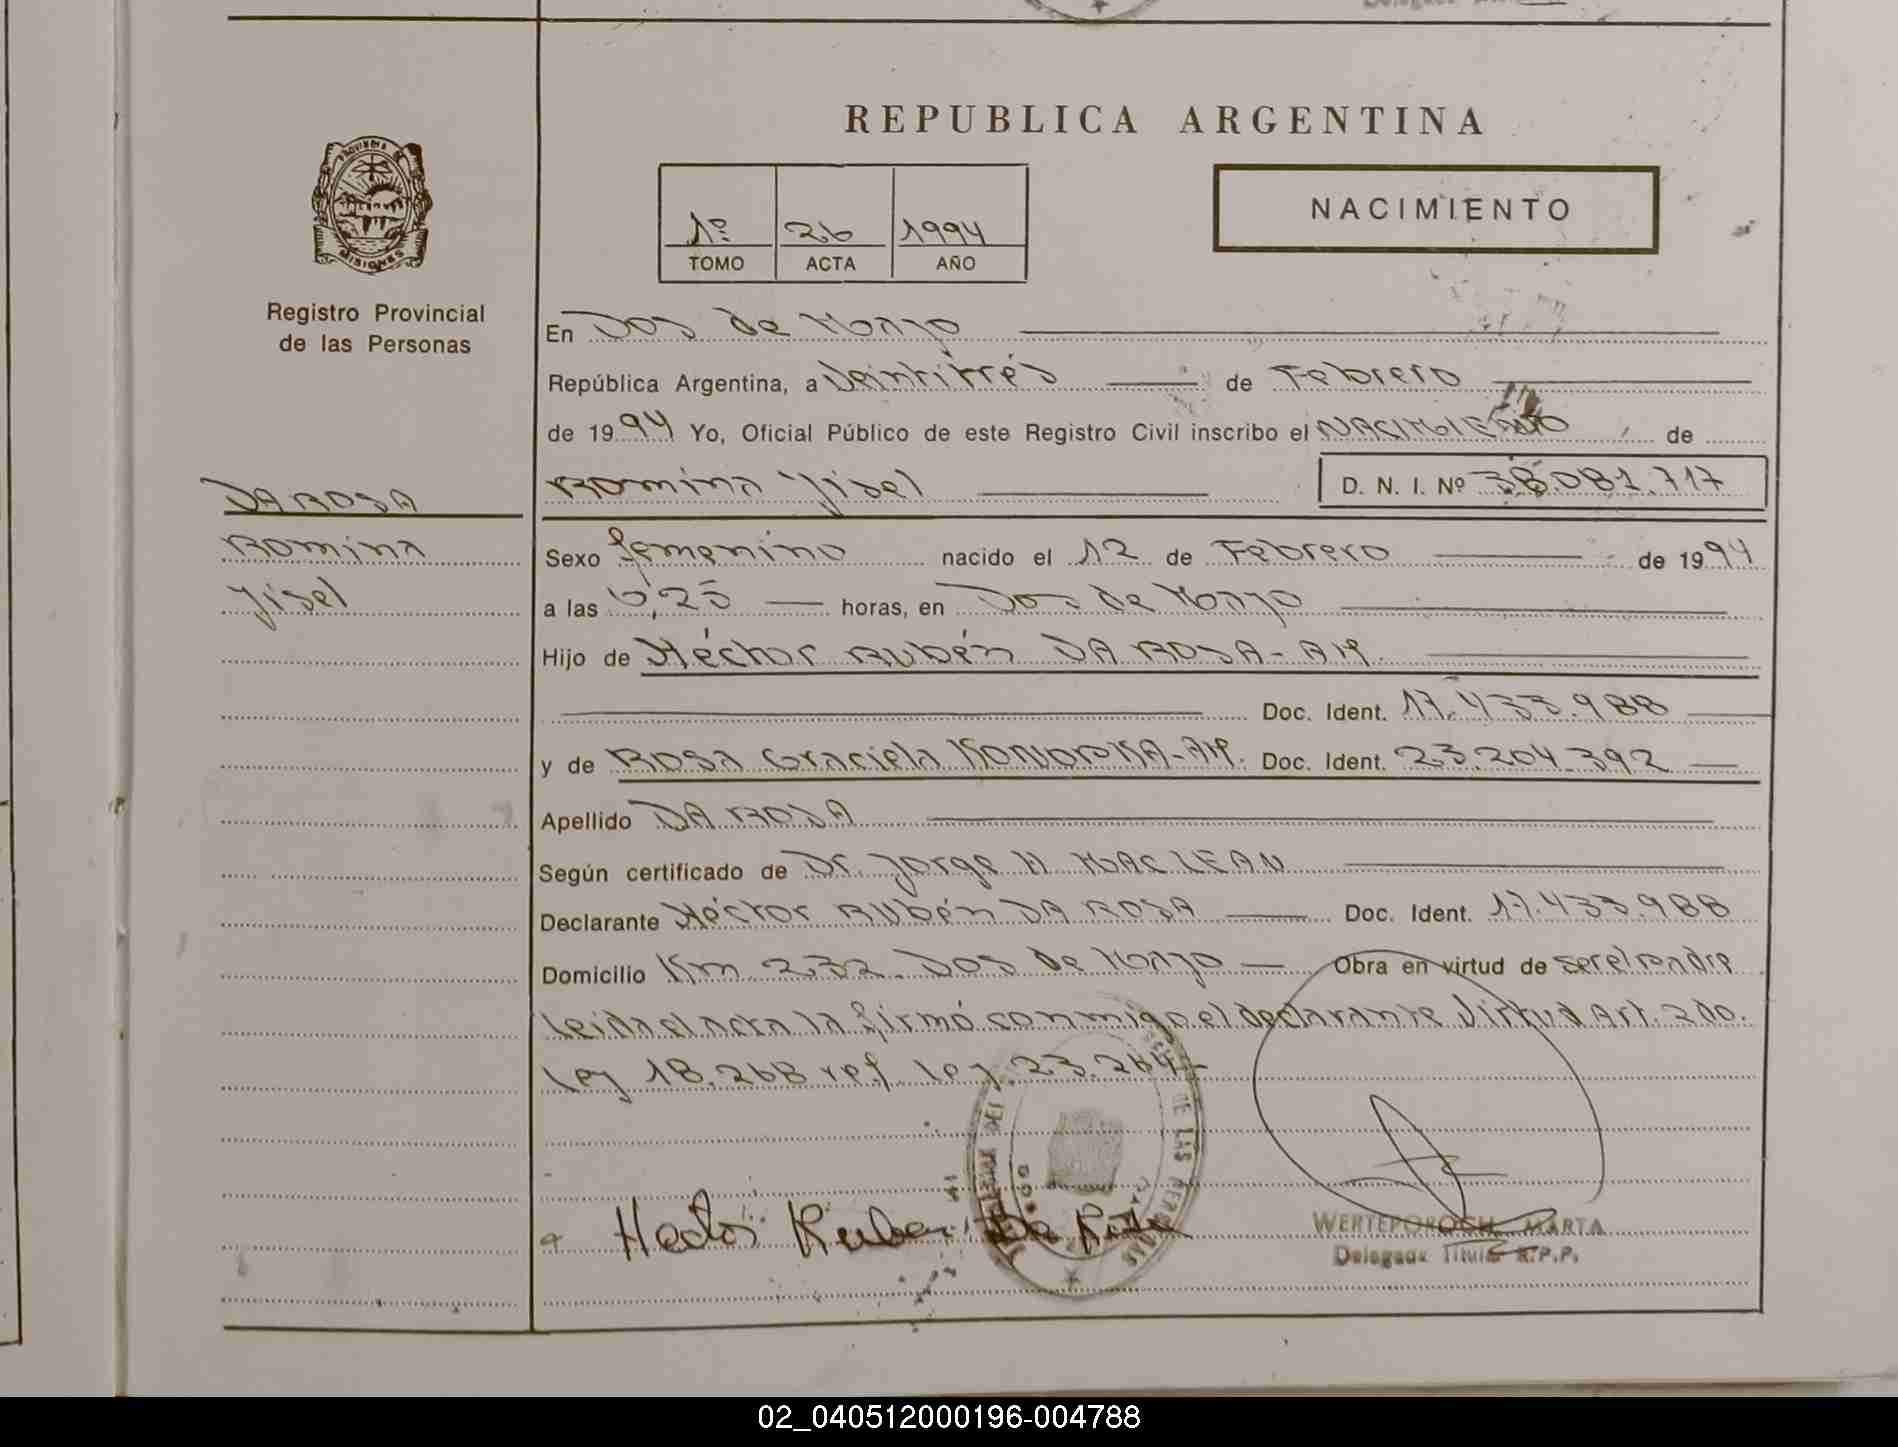 REPUBLICA ARGENTINA
PROVINCIA DE
MISIONES
Registro Provincial
de las Personas
1º 26 1994
TOMO ACTA AÑO
NACIMIENTO
En Dos de Mayo
República Argentina, a Veintitrés de Febrero
de 1994 Yo, Oficial Público de este Registro Civil inscribo el NACIMIENTO de
Romina Yisel D. N. I. Nº 38.081.717
DA ROSA
Romina
Yisel
Sexo femenino nacido el 12 de Febrero de 1994
a las 6,25 horas, en Dos de Mayo
Hijo de Héctor Rubén DA ROSA - AR.
Doc. Ident. 17.433.988
y de Rosa Graciela - AR. Doc. Ident. 23.204.392
Apellido DA ROSA
Según certificado de Dr. Jorge H. MAC LEAN
Declarante Héctor Rubén DA ROSA Doc. Ident. 17.433.988
Domicilio Km 232. Dos de Mayo Obra en virtud de ser el padre
Leida el acta la firmó conmigo el declarante Virtud Art. 2do.
Ley 18.268 ref. Ley. 23.264
DE LAS PERSONAS
Hector Ruben Da Rosa
WERTEPOROCH MARTA
Delegada Titular R.P.P.
02_040512000196-004788